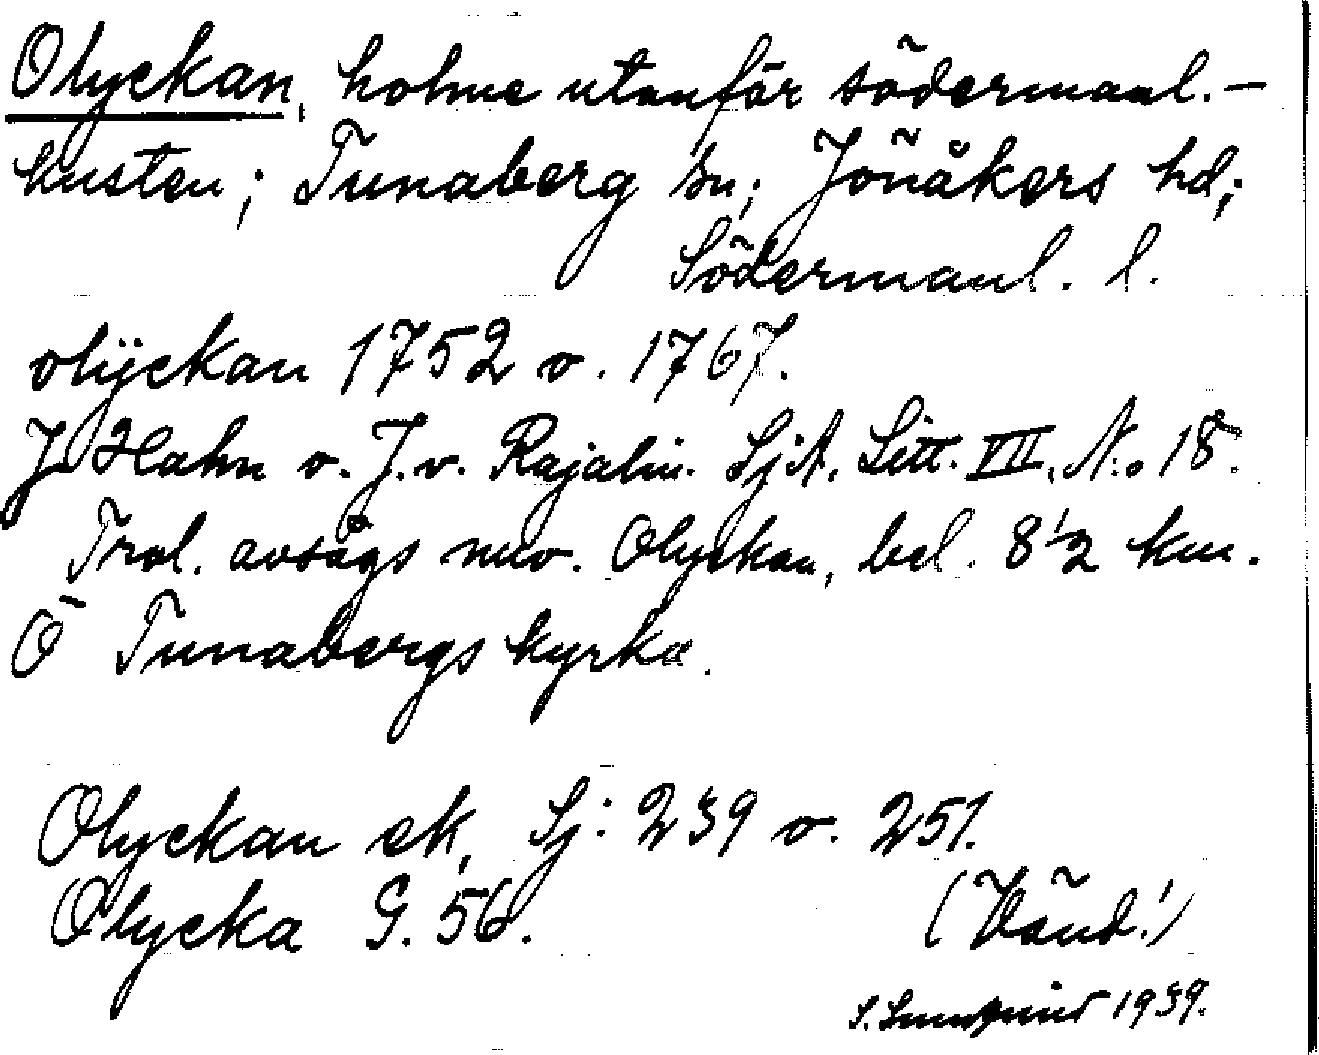 Olyckan, holme utanför södermanl.-
kusten; Tunaberg sn; Jönåkers hd;
Södermanl. l.
olÿckan 1752 o. 1767.
J Hahn o. J. v. Rajalin. SjA, Litt. VII, N:o 18.
Trol. avsågs nuv. Olyckan, bel. 8 1/2 km.
Ö Tunabergs kyrka.
Olyckan ek, Sj: 239 o. 251.
Olycka G. 56.
(Vänd!)
S. 1939.